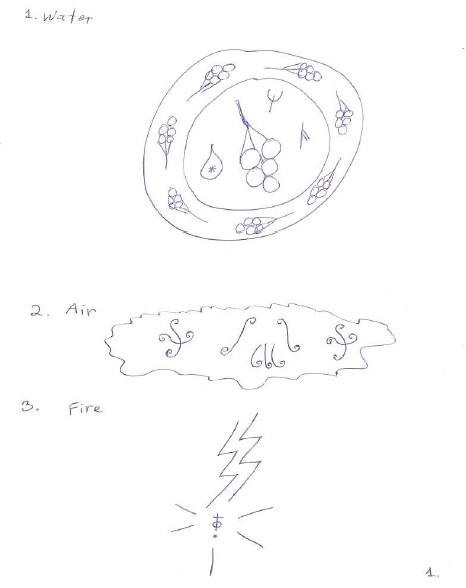 1. Water
2. Air
3. Fire
1.